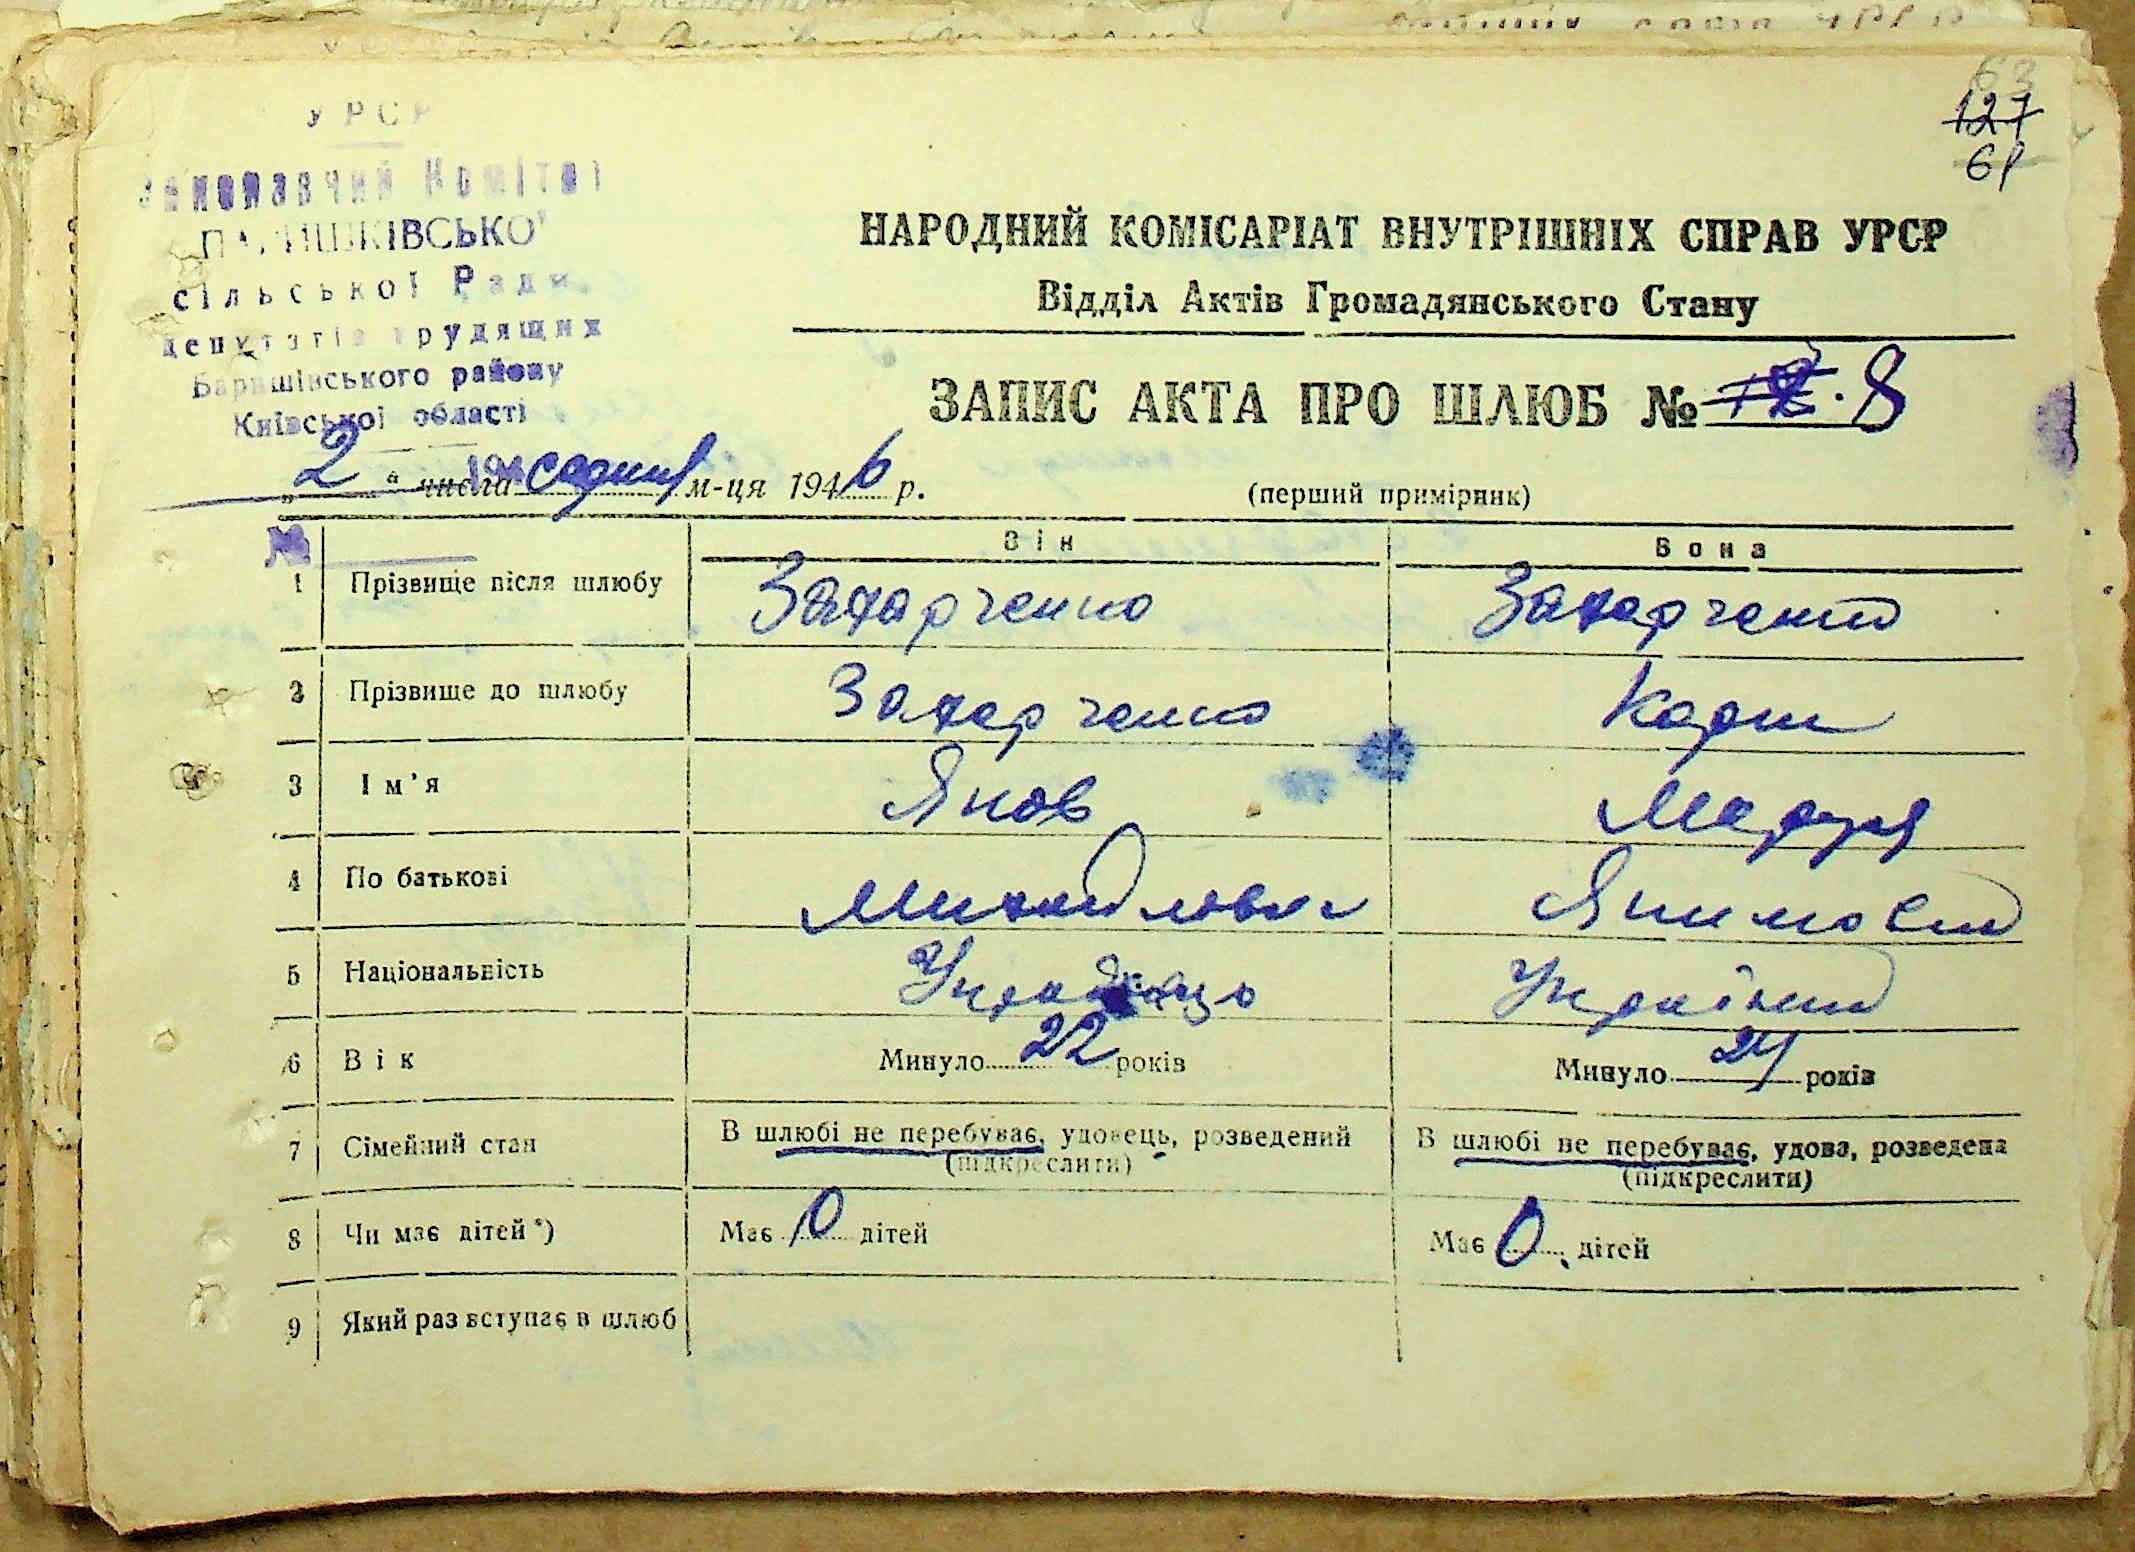 УРСР
Виконавчий Комітет
сільської Ради
депутатів трудящих
Баришівського району
Київської області
63
127
61
НАРОДНИЙ КОМІСАРІАТ ВНУТРІШНІХ СПРАВ УРСР
Відділ Актів Громадянського Стану
ЗАПИС АКТА ПРО ШЛЮБ № 8
„2“ числа серпня м-ця 1946 р.
(перший примірник)
№ Він Вона
1 Прізвище після шлюбу Захарченко Захарченко
2 Прізвище до шлюбу Захарченко
3 Ім'я Яков Мария
4 По батькові Михайлович Якимовна
5 Національність Українець Українка
6 Вік Минуло 22 років Минуло 24 років
7 Сімейний стан В шлюбі не перебуває, удовець, розведений В шлюбі не перебуває, удова, розведена
(підкреслити) (підкреслити)
8 Чи має дітей*) Має 0 дітей Має 0 дітей
9 Який раз вступає в шлюб